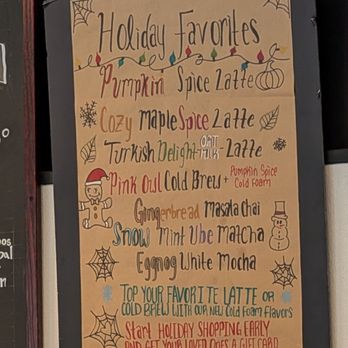 Holiday Favorites
Pumpkin Spice Latte
Cozy Maple Spice Latte
Turkish Delight OAT MILK Latte
Pink Owl Cold Brew + Pumpkin Spice Cold Foam
Gingerbread Masala Chai
Snow Mint Ube Matcha
Eggnog White Mocha
TOP YOUR FAVORITE LATTE OR
COLD BREW WITH OUR NEW COLD FOAM FLAVORS
Start HOLIDAY SHOPPING EARLY
AND GET YOUR LOVED ONES A GIFT CARD